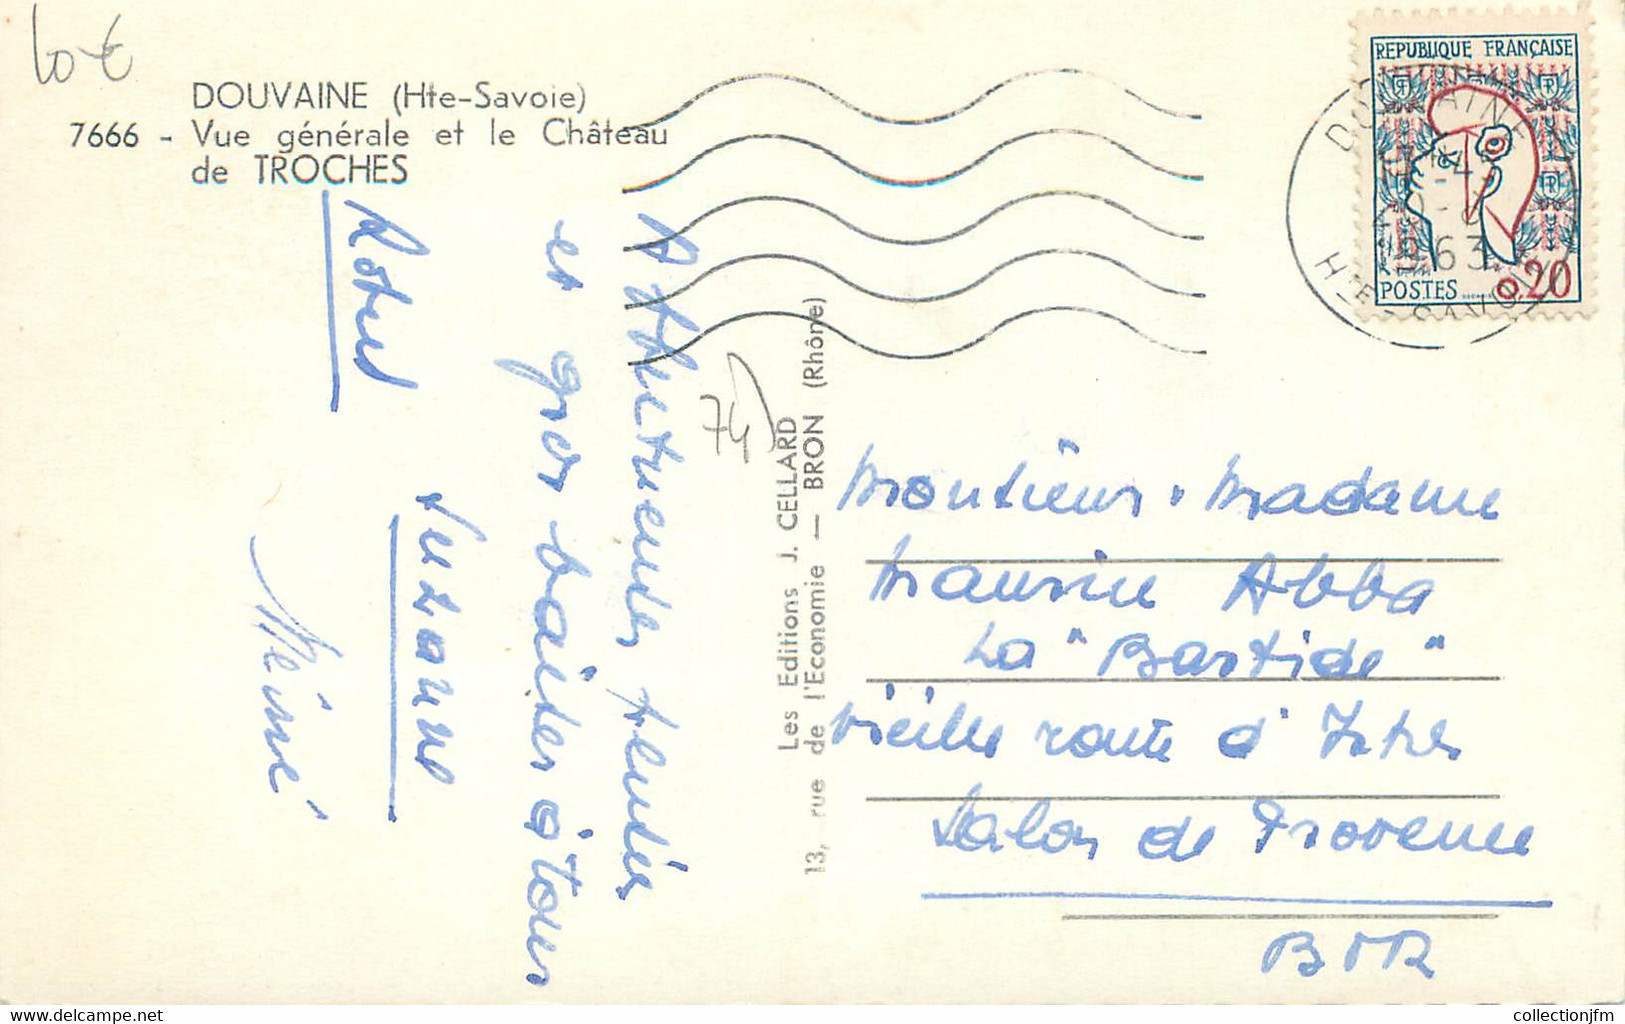 10 €
DOUVAINE (Hte-Savoie)
7666 - Vue générale et le Château
de TROCHES
Affectueuses pensées
et gros baisers à tous
Robert
Suzanne
Mémé
74
Les Editions J. CELLARD
13, rue de l'Economie — BRON (Rhône)
REPUBLIQUE FRANÇAISE
POSTES 0,20
DOUVAINE
1963
Hte SAVOIE
Monsieur. Madame
Maurice Abba
La "Bastide"
vieille route d'Istres
Salon de Provence
BDR
www.delcampe.net
collectionjfm